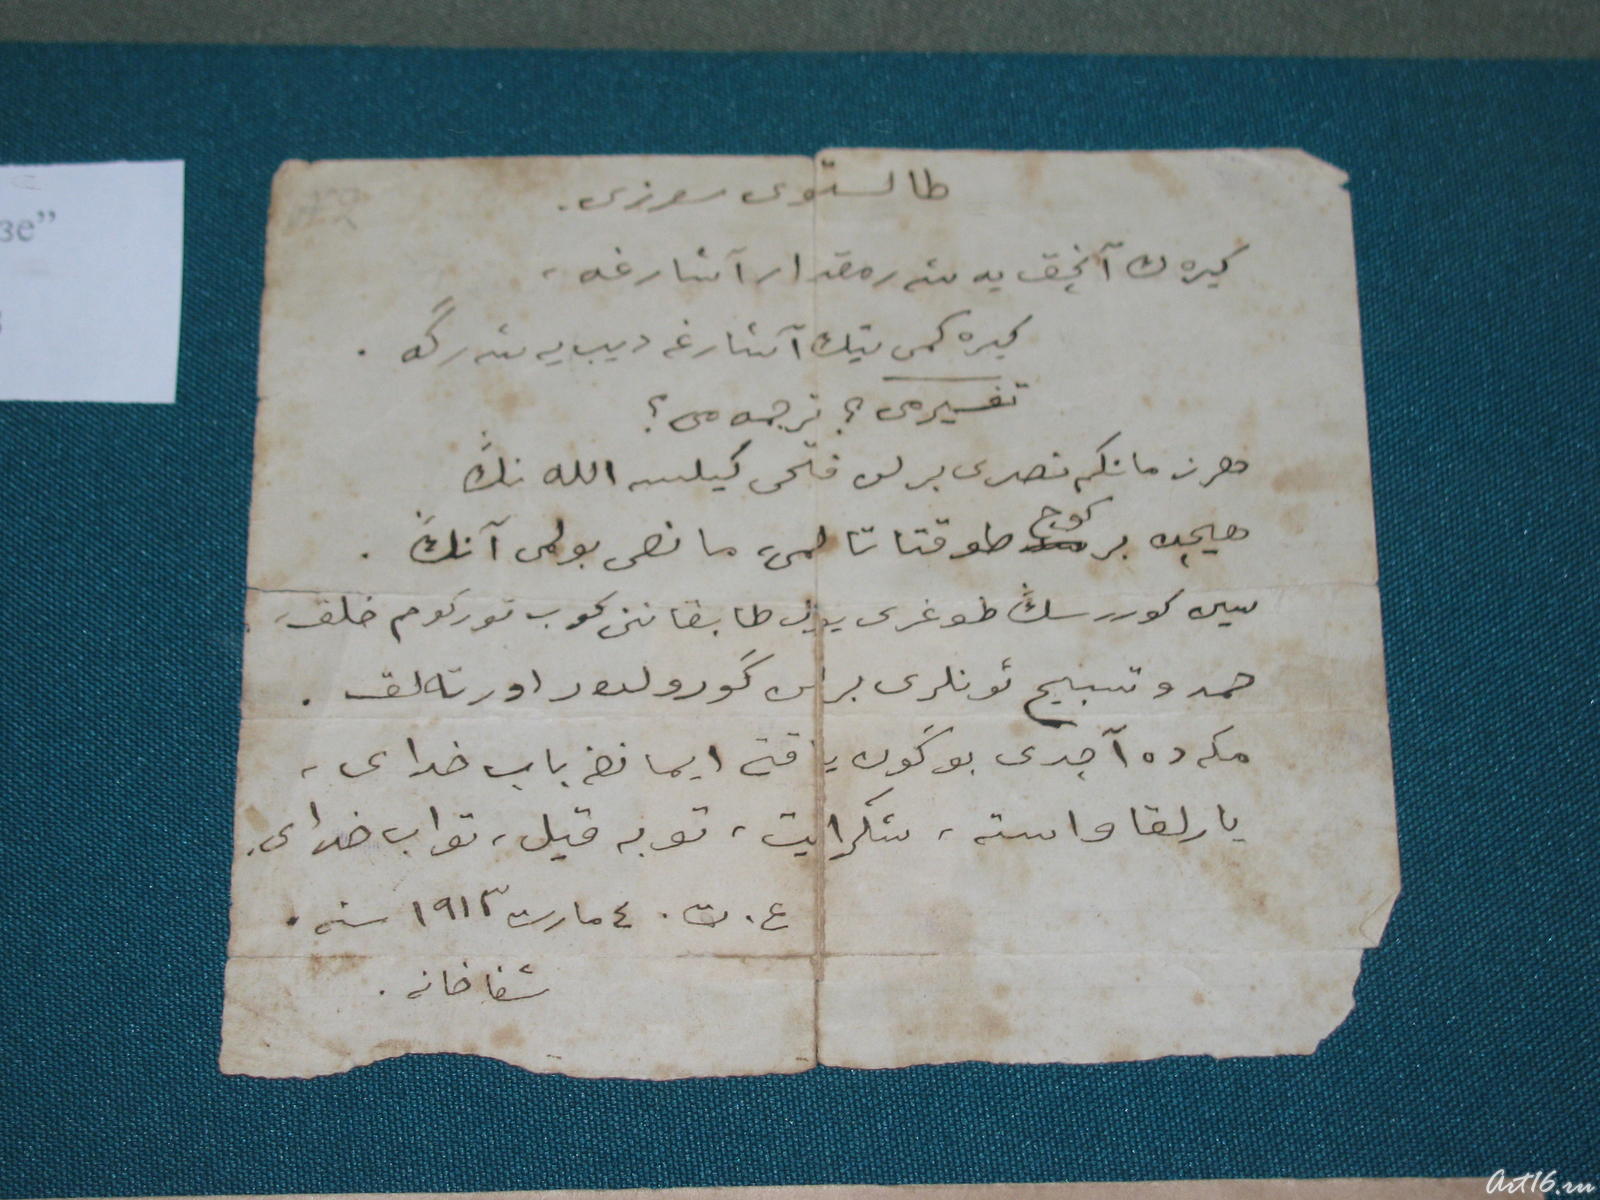 طالستوی سوزی.
كيره ك آنچق يه شه ر مقدار آشارغه،
كيره كمی تيك آشارغه ديب يه شه رگه.
تفسيرمی؟ ترجمه می؟
هر زمانكم نصری برلن فتحی كيلسه الله نڭ
هيچده بر كوچ طوقتاتالمی، مانعی بولمی آنڭ.
سين كوررسڭ طوغری يول طابقاننی كوب توركوم خلق،
حمد و تسبيح ئونلری برلن گورولدور اورتالق.
مكه ده آچدی بو كون يافتح ايمانغه باب خدای،
يارلقاو استه، شكر ايت، توبه قيل، تواب خدای.
ع. ت. ٤ مارت ١٩١٣ سنه.
شفاخانه.
зе”
Art16.ru